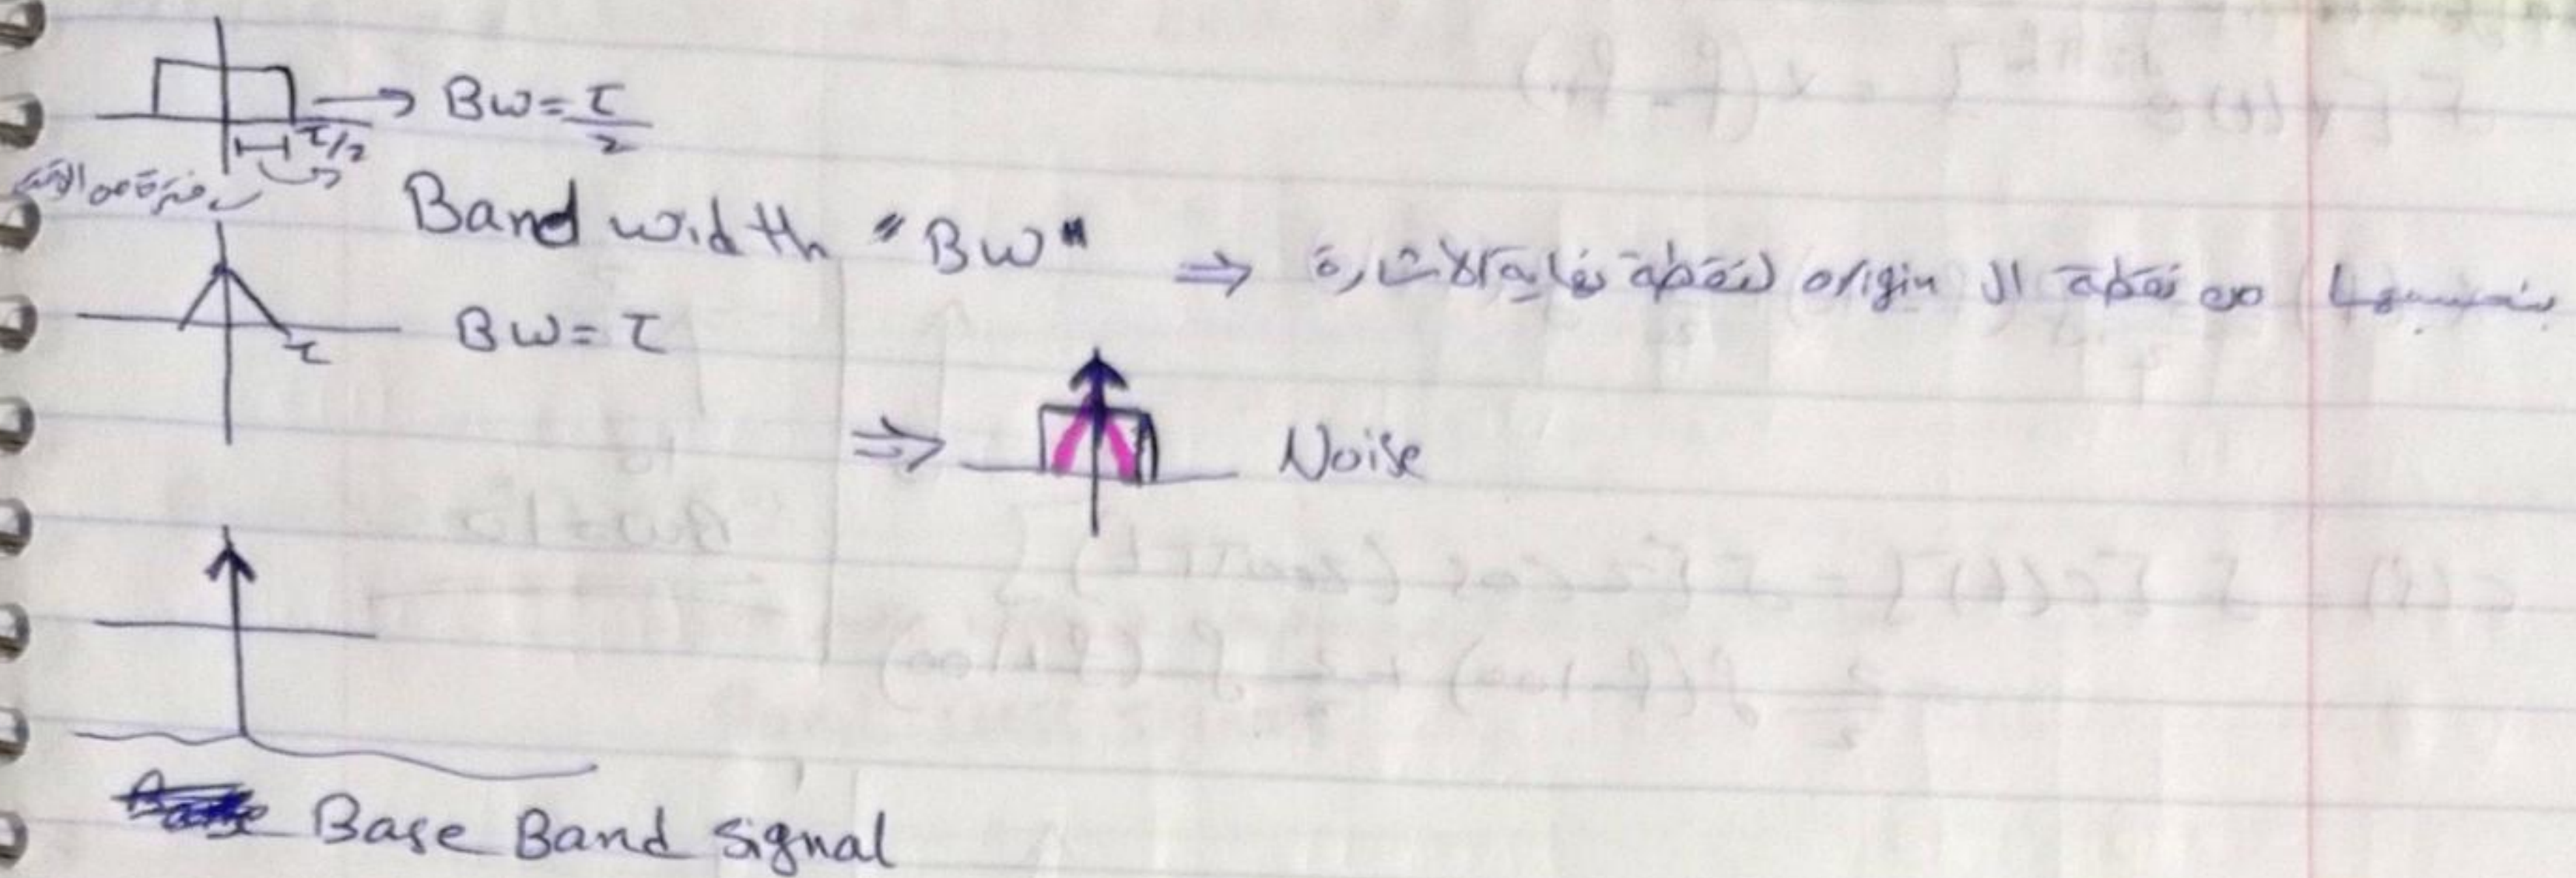 → BW = τ/2
τ/2
فترة من ال
Band width "BW" ⇒ بنحسبها من نقطة ال origin لنقطة نهاية الاشارة
BW = τ
τ
⇒ Noise
Base Band signal